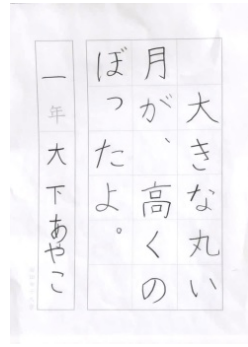 大きな丸い
月が、高くの
ぼったよ。
一年 大下あやこ